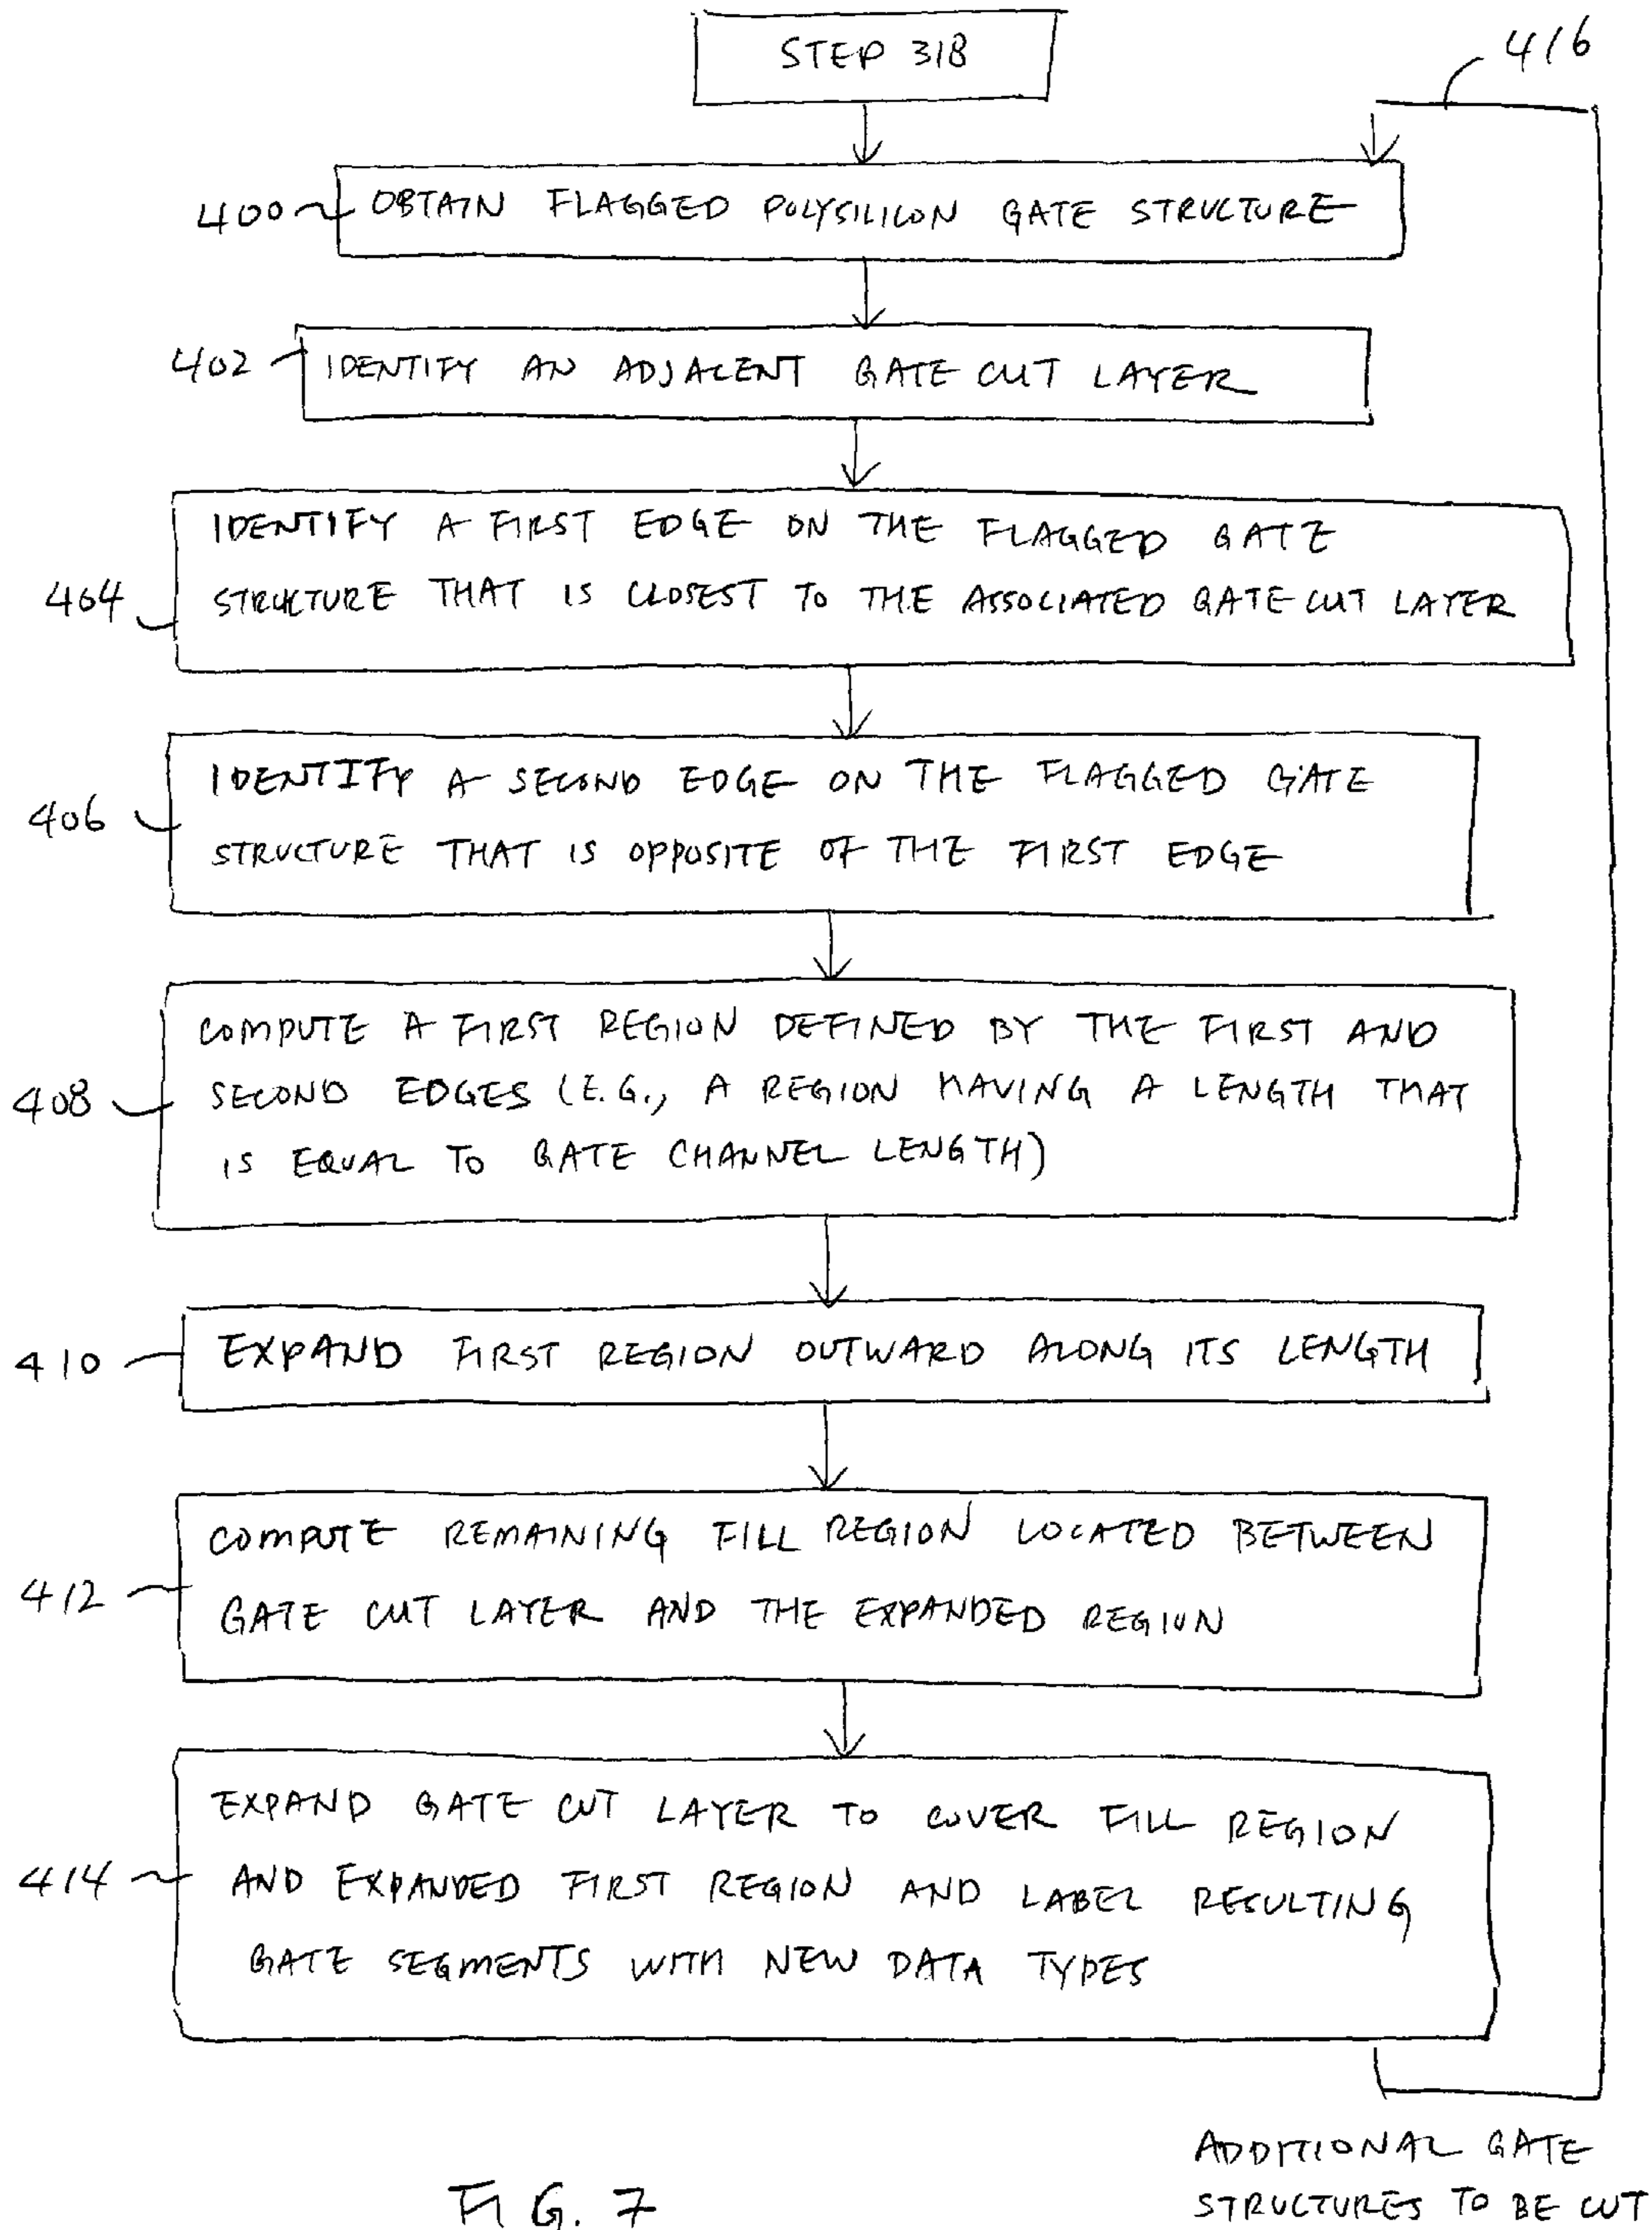 STEP 318
416
400 OBTAIN FLAGGED POLYSILICON GATE STRUCTURE
402 IDENTIFY AN ADJACENT GATE CUT LAYER
IDENTIFY A FIRST EDGE ON THE FLAGGED GATE
404 STRUCTURE THAT IS CLOSEST TO THE ASSOCIATED GATE CUT LAYER
IDENTIFY A SECOND EDGE ON THE FLAGGED GATE
406 STRUCTURE THAT IS OPPOSITE OF THE FIRST EDGE
COMPUTE A FIRST REGION DEFINED BY THE FIRST AND
408 SECOND EDGES (E.G., A REGION HAVING A LENGTH THAT
IS EQUAL TO GATE CHANNEL LENGTH)
410 EXPAND FIRST REGION OUTWARD ALONG ITS LENGTH
COMPUTE REMAINING FILL REGION LOCATED BETWEEN
412 GATE CUT LAYER AND THE EXPANDED REGION
EXPAND GATE CUT LAYER TO COVER FILL REGION
414 AND EXPANDED FIRST REGION AND LABEL RESULTING
GATE SEGMENTS WITH NEW DATA TYPES
ADDITIONAL GATE
STRUCTURES TO BE CUT
FIG. 7